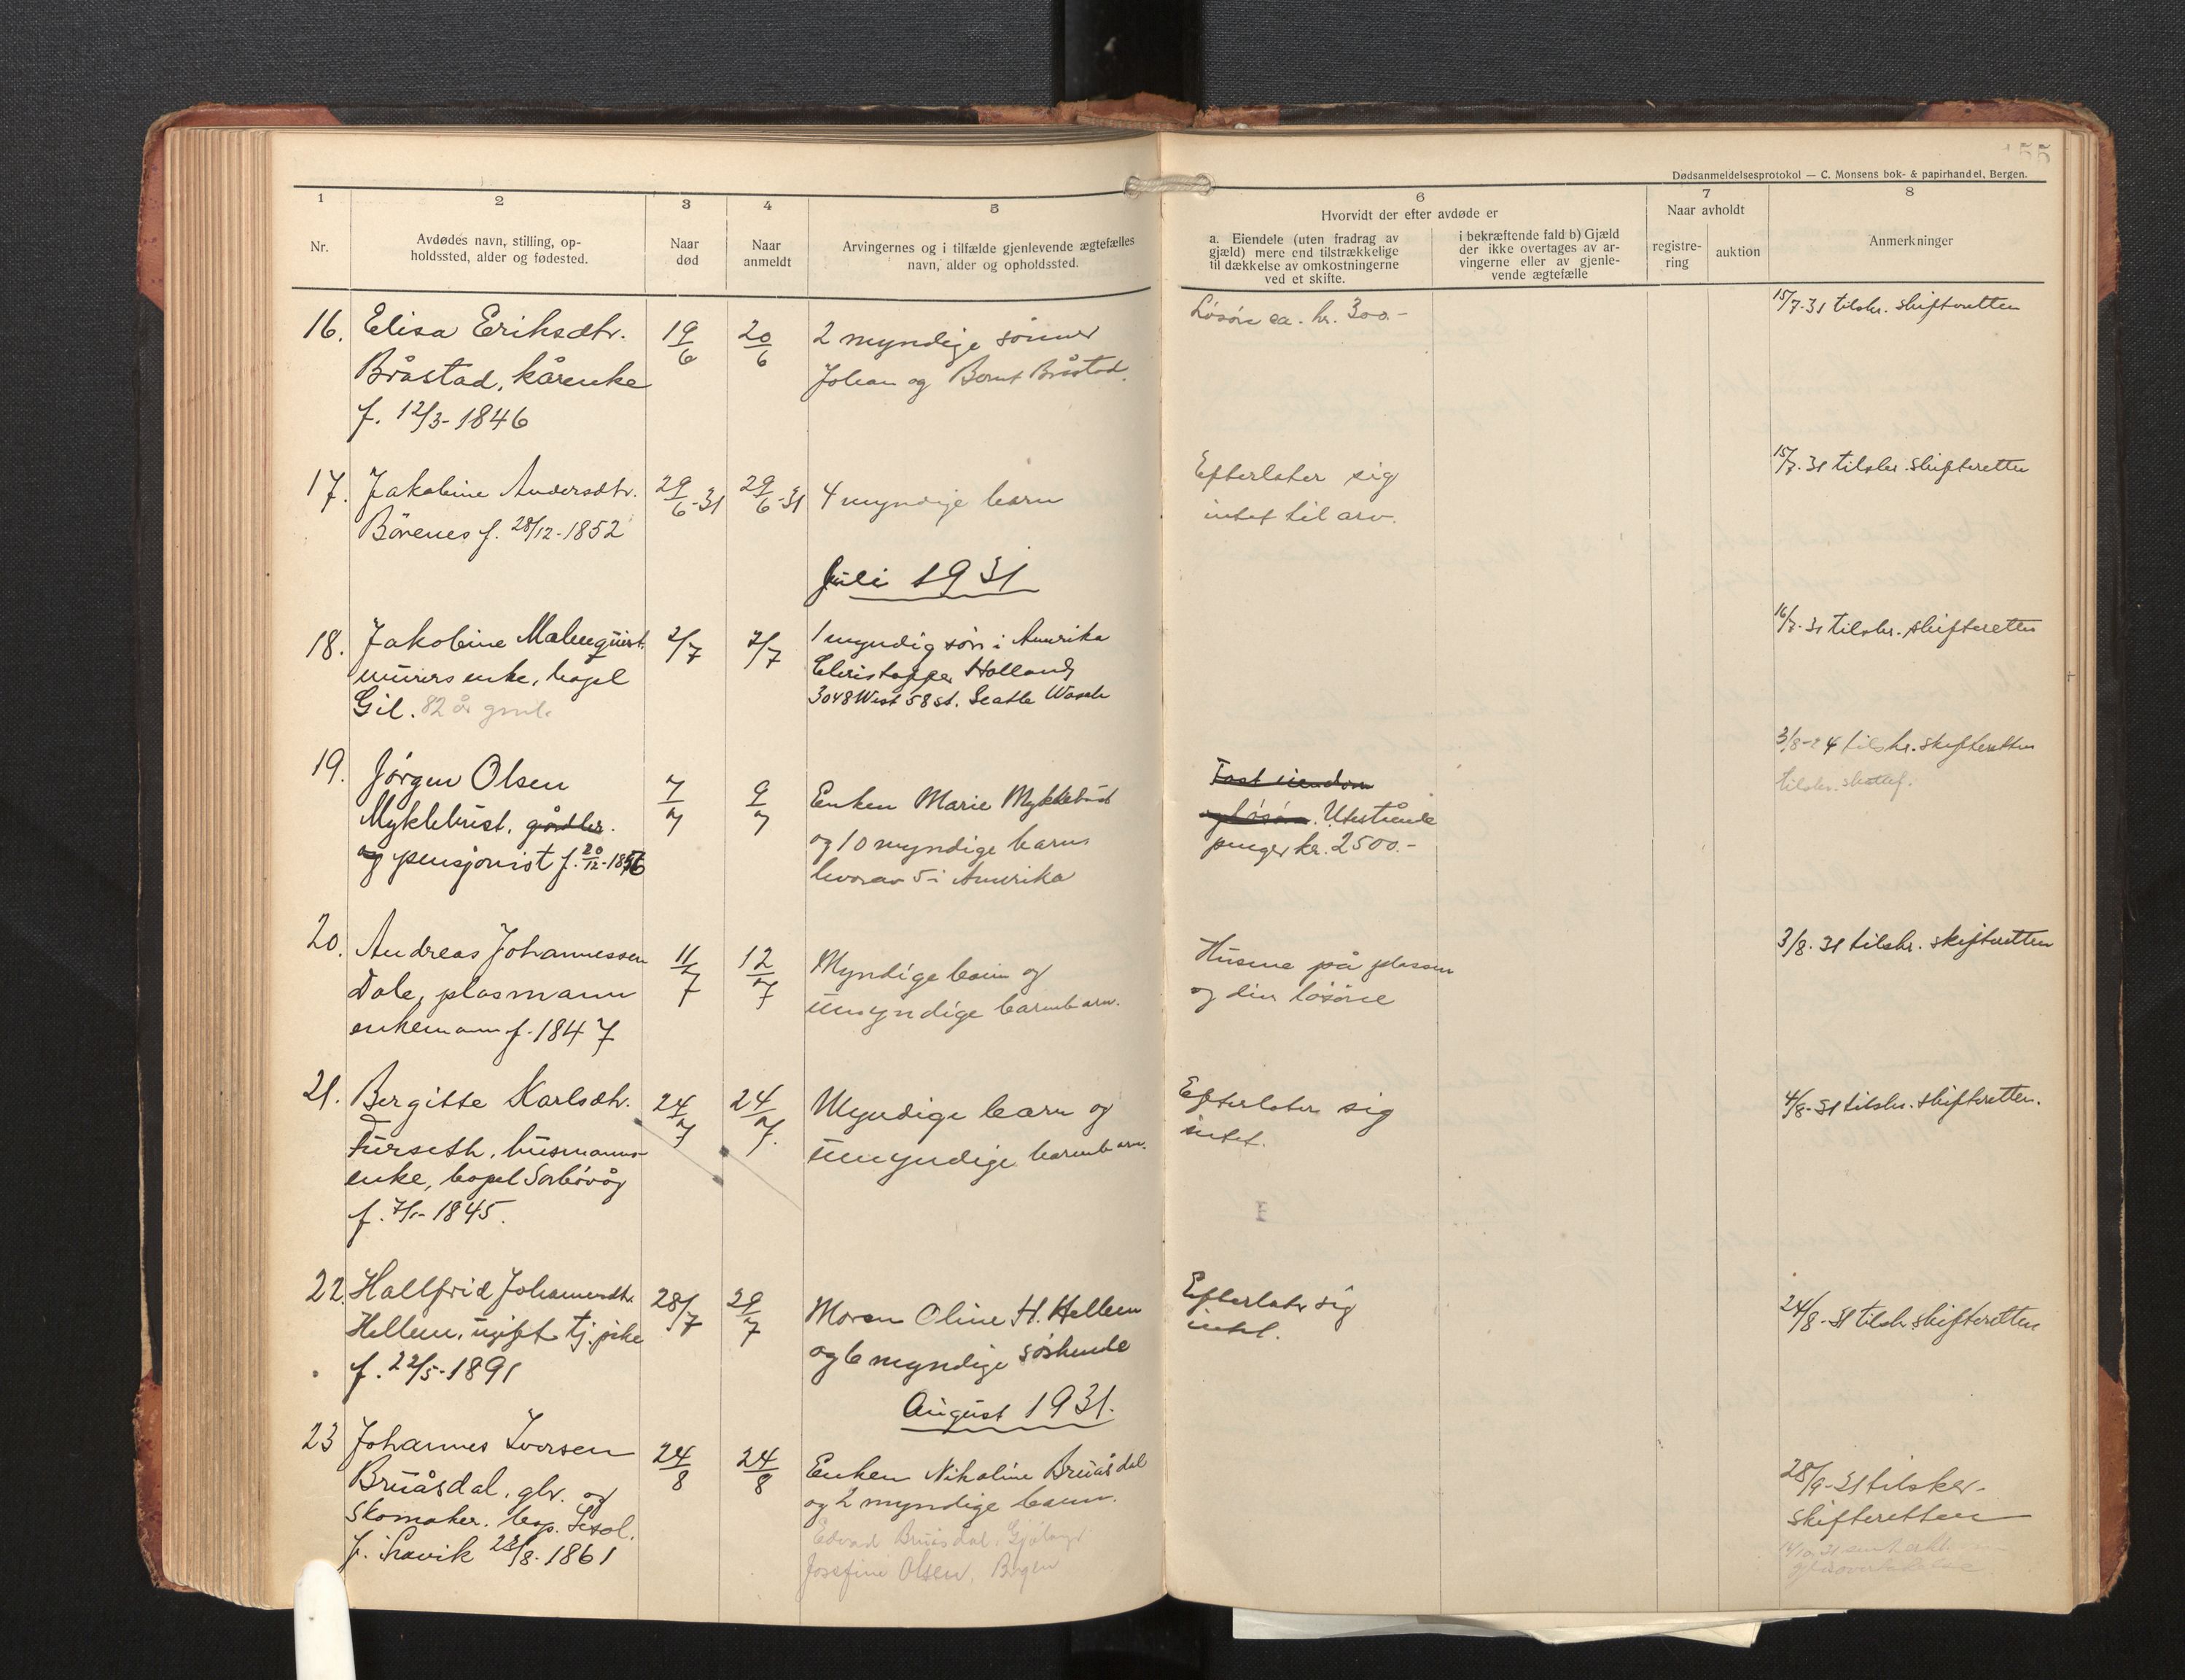 155
Dødsanmeldelsesprotokol — C. Monsens bok- & papirhandel, Bergen.
1
2
3
4
5
6
7
8
Nr.
Avdødes navn, stilling, op-
holdssted, alder og fødested.
Naar
død
Naar
anmeldt
Arvingernes og i tilfælde gjenlevende ægtefælles
navn, alder og opholdssted.
Hvorvidt der efter avdøde er
a. Eiendele (uten fradrag av
gjæld) mere end tilstrækkelige
til dækkelse av omkostningerne
ved et skifte.
i bekræftende fald b) Gjæld
der ikke overtages av ar-
vingerne eller av gjenle-
vende ægtefælle
Naar avholdt
registre-
ring
auktion
Anmerkninger
16. Elisa Eriksdtr.
Bråstad, kårenke
f. 12/3-1846
19/6
20/6
2 myndige sönner
Johan og Bernt Bråstad.
Lösöre ca. kr. 300.-
15/7-31 tilskr. skifteretten
17. Jakobine Andersdtr.
Börenes f. 28/12-1852
29/6-31
29/6-31
4 myndige barn
Efterlater sig
intet til arv.
15/7-31 tilskr. skifteretten
Juli 1931
18. Jakobine Malmquist,
murers enke, bopel
Gil. 82 år gml.
2/7
7/7
1 myndig sön i Amerika
Christopher Holland
3048 West 58 st. Seatle Wash
16/7-31 tilskr. skifteretten
19. Jörgen Olsen
Myklebust, gårdbr.
og pensjonist f. 20/12-1856
7/7
9/7
Enken Marie Myklebust
og 10 myndige barn
hvorav 5 i Amerika
Fast eiendom
og lösöre. Utestående
penger kr. 2500.-
3/8- tilskr. skifteretten
tilskr.
20. Andreas Johannessen
Dale, plasmann
enkemann f. 1847
11/7
12/7
Myndige barn og
umyndige barnebarn.
Husene på plassen
og div lösöre
3/8-31 tilskr. skifteretten
21. Bergitte Karlsdtr.
Furseth, husmanns-
enke, bopel Sörbövåg
f. 1845.
24/7
24/7.
Myndige barn og
umyndige barnebarn.
Efterlater sig
intet.
4/8-31 tilskr. skifteretten.
22. Hallfrid Johannesdtr.
Hellem, ugift tj. pike
f. 22/5-1891
28/7
29/7
Moren Oline H. Hellem
og 6 myndige söskende
Efterlater sig
intet.
24/8-31 tilskr. skifteretten
August 1931.
23 Johannes Iversen
Bruåsdal, gbr. og
skomaker. bop.
f. 28/8-1861
24/8
24/8
Enken Nikoline Bruåsdal
og 2 myndige barn.
Edvard Bruåsdal,
Josefine Olsen,
28/9-31 tilskr.
skifteretten